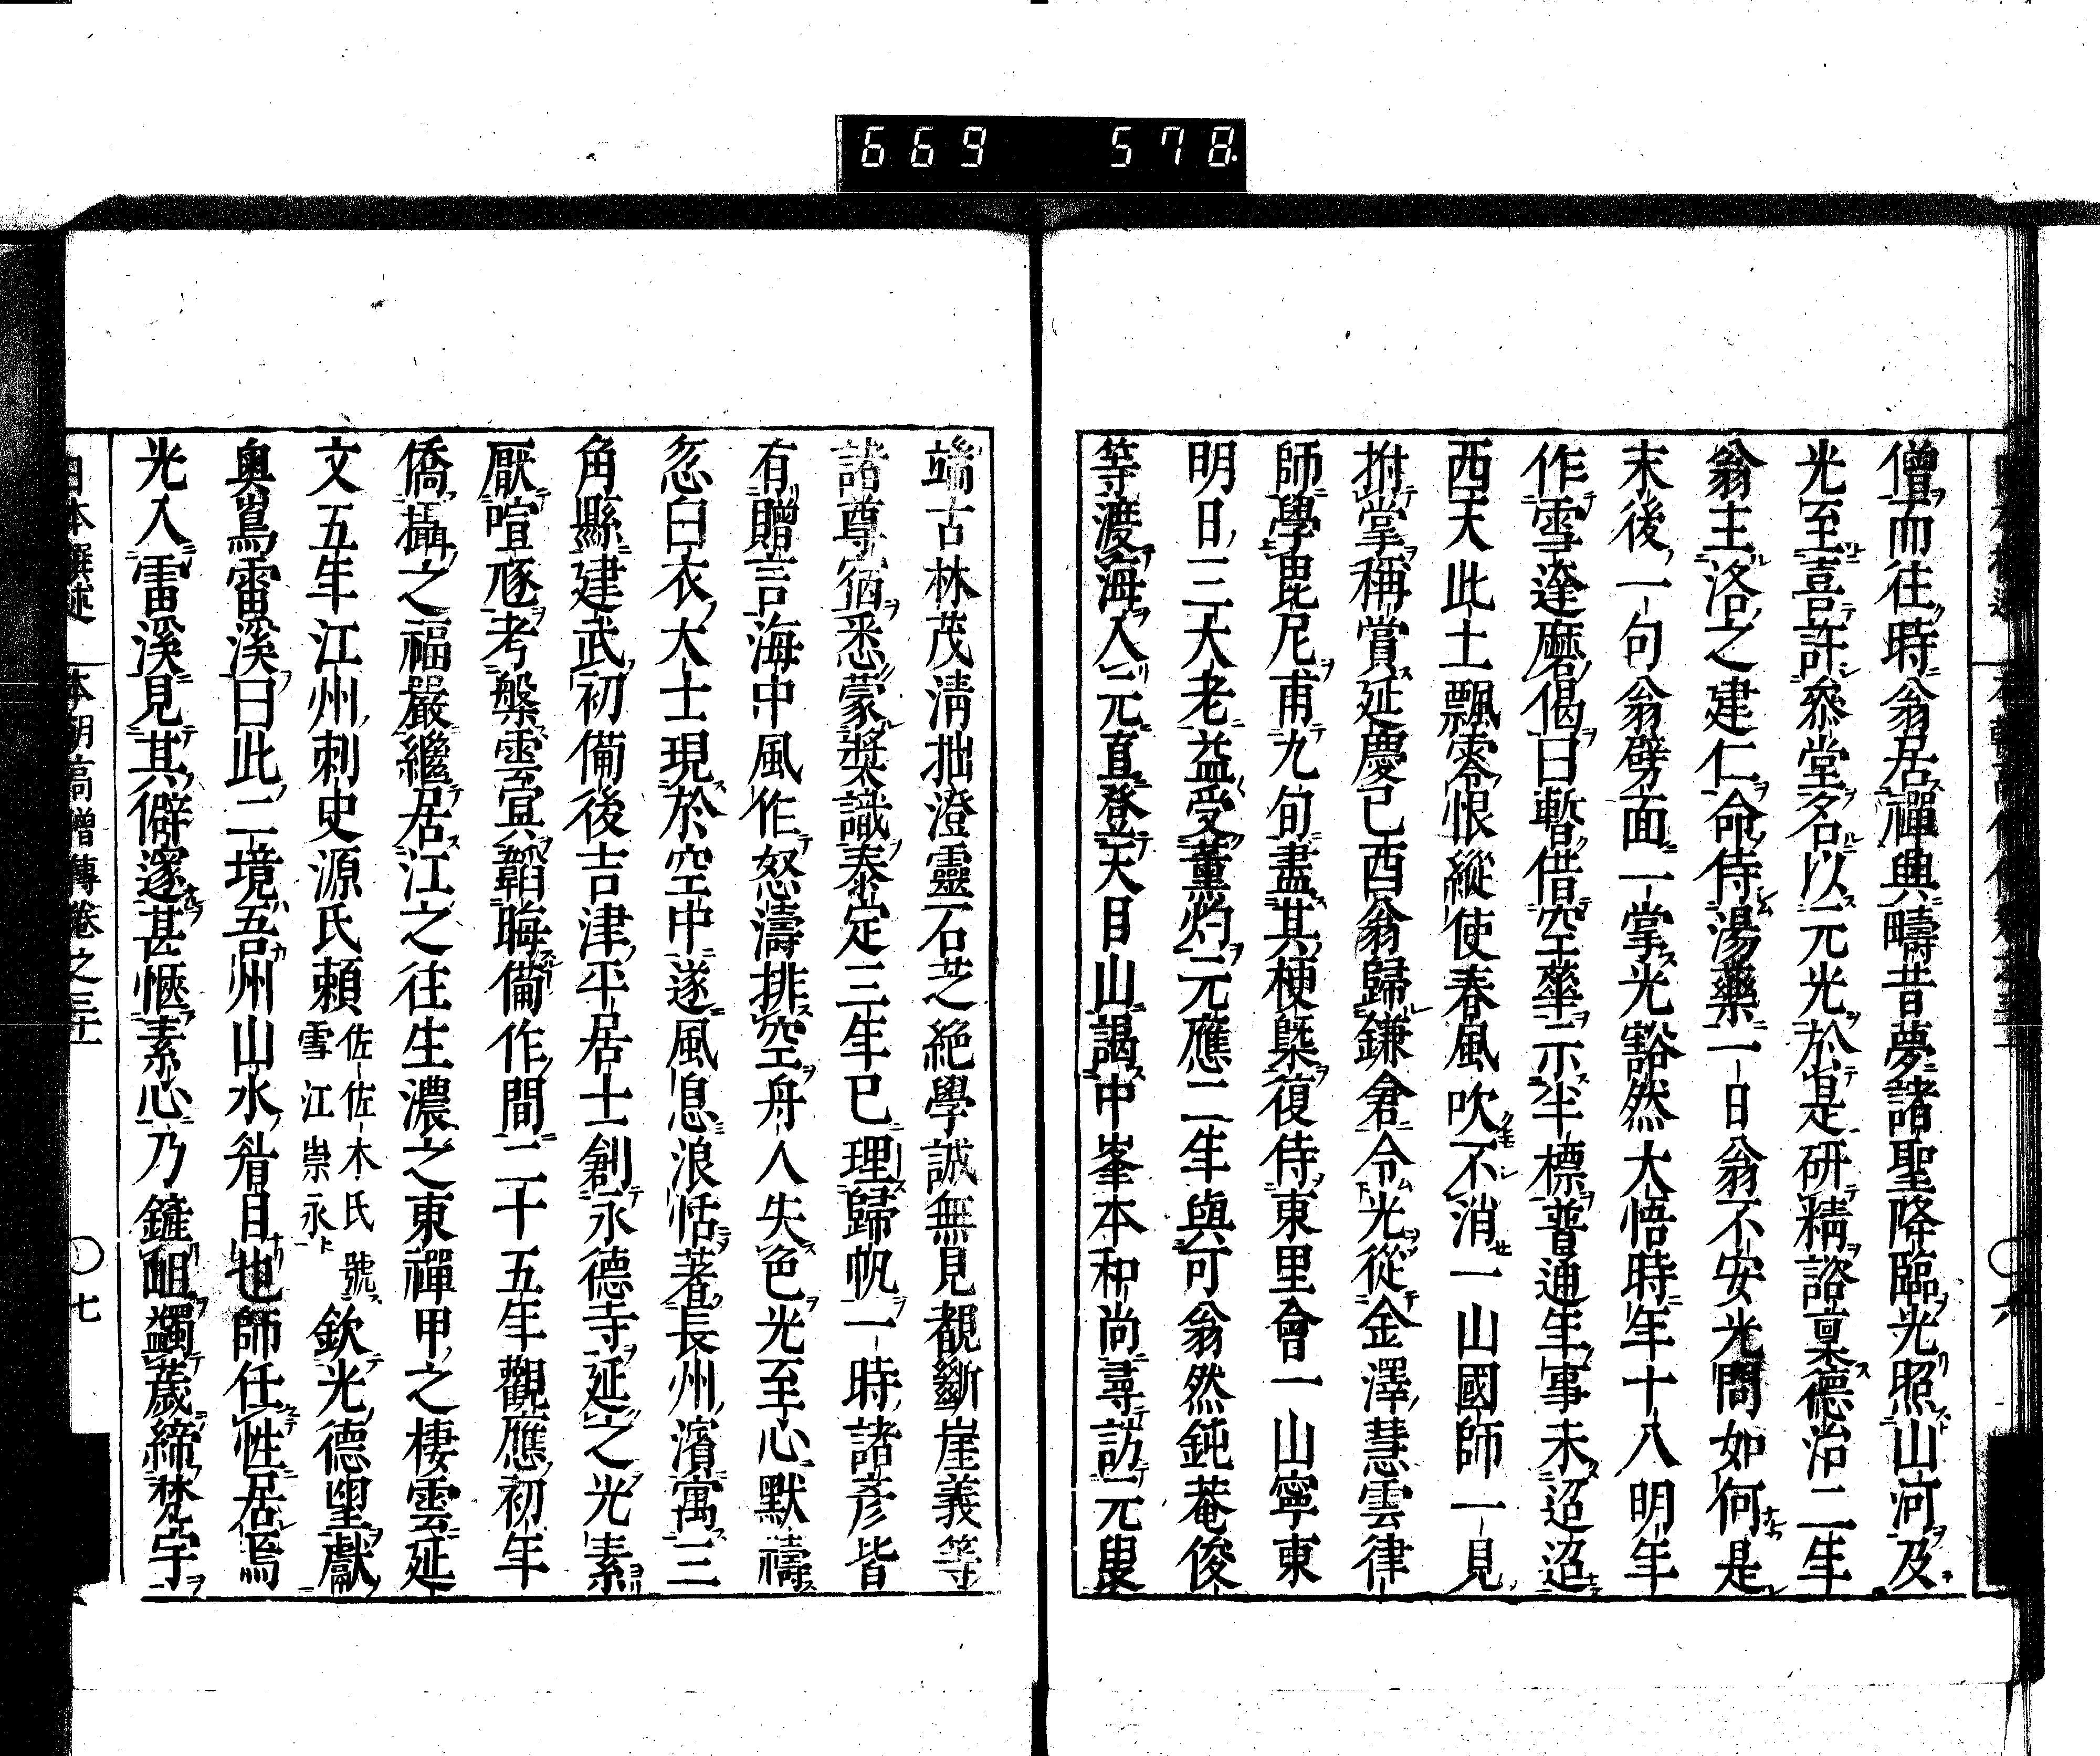 669 578
僧而往時翁居禪興疇昔夢諸聖降臨光照山河及
光至喜許參堂名以元光於是研精諮稟德治二年
翁主洛之建仁命侍湯藥一日翁不安光問如何是
末後一句翁劈面一掌光豁然大悟時年十八明年
作雪達磨偈曰暫借空華示半標普通年事未迢迢
西天此土飄零恨縱使春風吹不消一山國師一見
拊掌稱賞延慶己酉翁歸鎌倉令光從金澤慧雲律
師學毘尼甫九旬盡其梗槩復侍東里會一山寧東
明日三大老益受薰灼元應二年與可翁然鈍菴俊
等渡海入元直登天目山謁中峯本和尚尋訪元叟
端古林茂淸拙澄靈石芝絕學誠無見覩斷崖義等
諸尊宿悉蒙奬識泰定三年已理歸帆一時諸彥皆
有贈言海中風作怒濤排空舟人失色光至心默禱
忽白衣大士現於空中遂風息浪恬著長州濱寓三
角縣建武初備後吉津平居士創永德寺延之光素
厭喧豗考槃雲寘韜晦備作間二十五年觀應初年
僑攝之福嚴繼居江之往生濃之東禪甲之棲雲延
文五年江州刺史源氏賴佐佐木氏號雪江崇永欽光德望獻
奧嶌雷溪曰此二境吾州山水眉目也師任性居焉
光入雷溪見其僻邃甚愜素心乃鏟岨蠲薉締梵宇
日本撰述 本朝高僧傳卷之三十 〇七